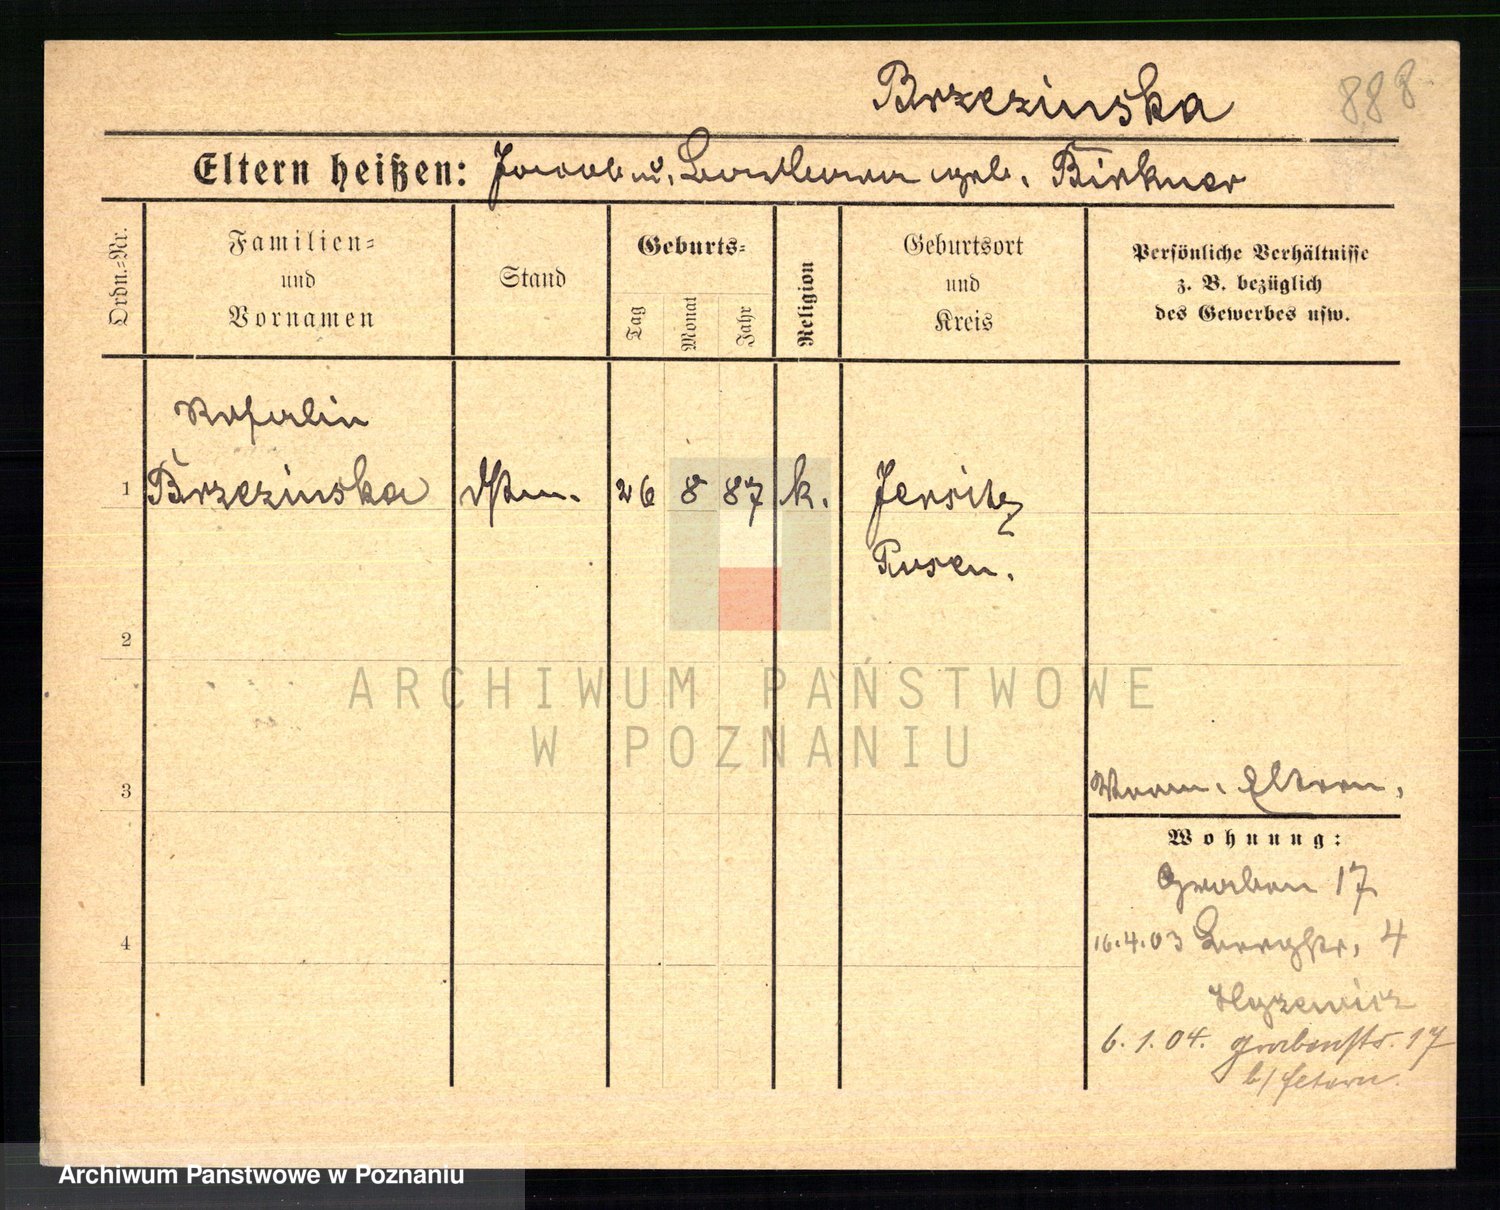 Brzezinska 888
Eltern heißen: Jacob u. geb. Birkner
Ordn.=Nr.
Familien=
und
Vornamen
Stand
Geburts=
Tag
Monat
Jahr
Religion
Geburtsort
und
Kreis
Persönliche Verhältnisse
z. B. bezüglich
des Gewerbes usw.
Rosalie
1 Brzezinska 26 8 87 k. Jersitz
Posen.
2
ARCHIWUM PAŃSTWOWE
W POZNANIU
3 Eltern.
Wohnung:
Graben 17
4 16.4.03 Bergstr. 4
6.1.04. Grabenstr. 17
b/ Eltern.
Archiwum Państwowe w Poznaniu